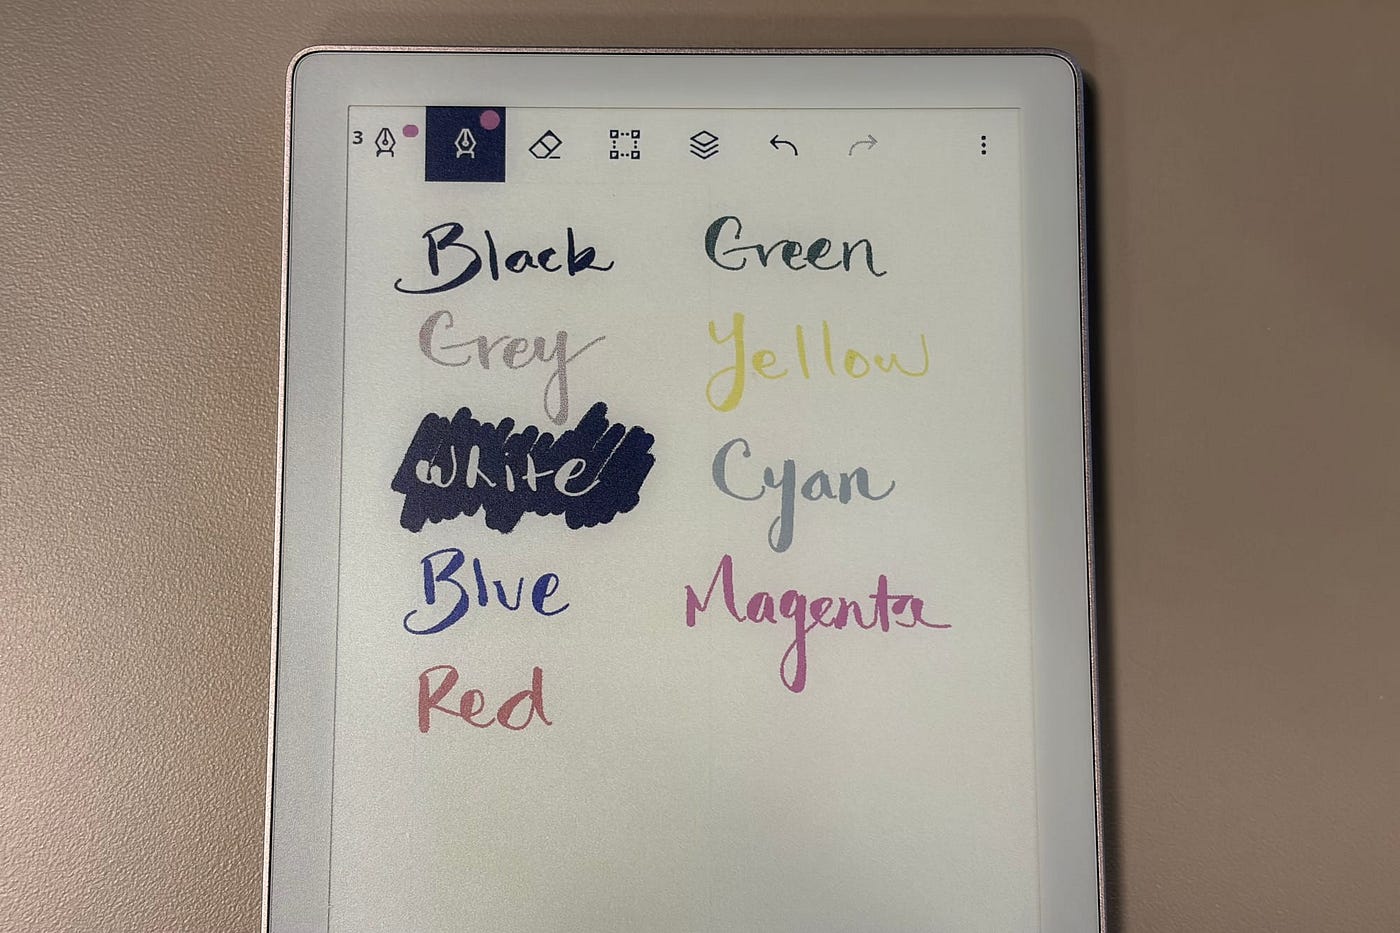 3
Black
Grey
White
Blue
Red
Green
Yellow
Cyan
Magenta